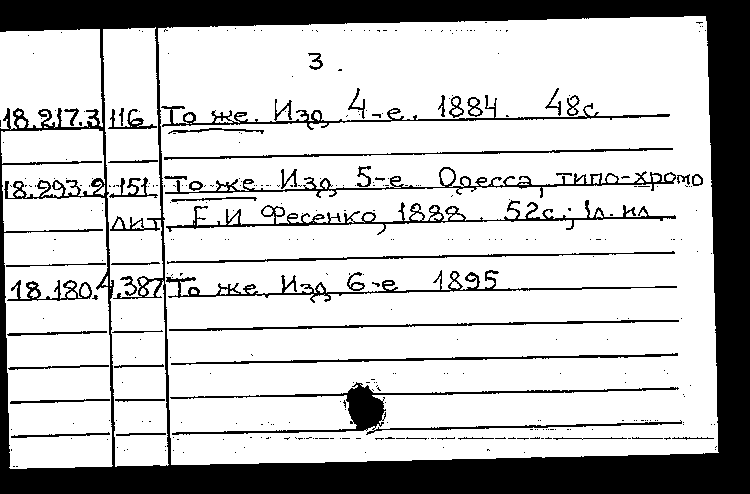 3.
18.217.3.116. То же. Изд. 4-е. 1884. 48с.
18.293.2.151. То же. Изд. 5-е. Одесса, типо-хромо
лит. Е.И Фесенко, 1888. 52с.; 1л. ил.
18.180.4.387 То же. Изд. 6-е 1895